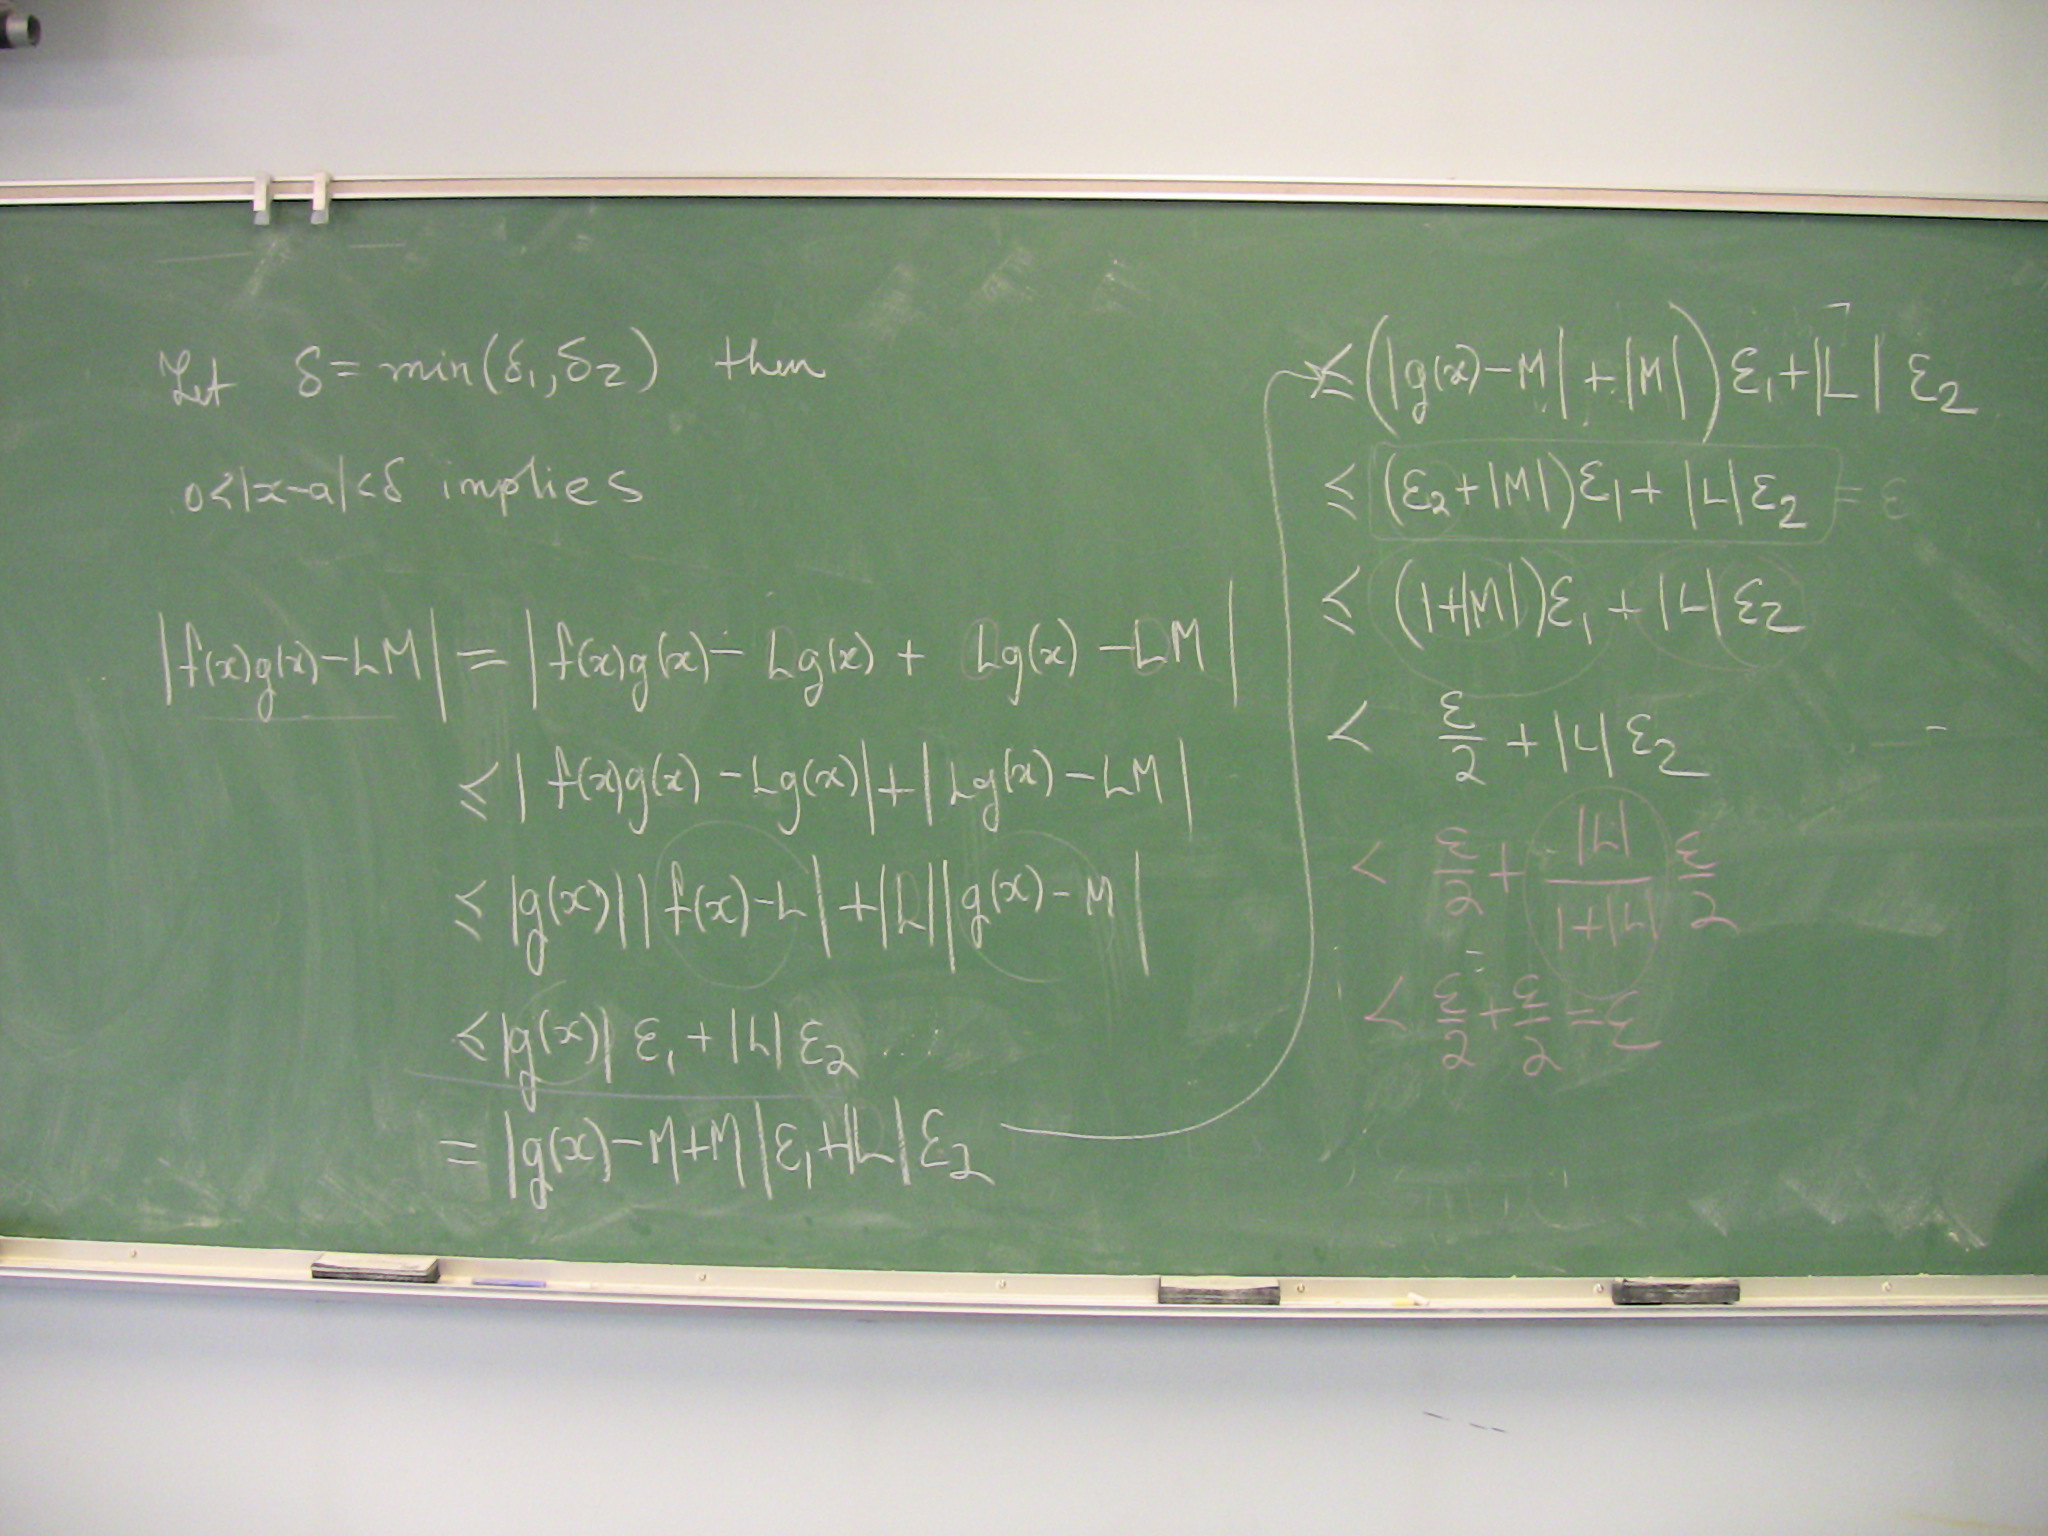 Let δ = min(δ₁, δ₂) then
0<|x-a|<δ implies
|f(x)g(x)-LM| = |f(x)g(x)- Lg(x) + Lg(x) -LM|
≤ |f(x)g(x) - Lg(x)| + |Lg(x) - LM|
≤ |g(x)| |f(x)-L| + |L| |g(x)- M|
≤ |g(x)| ε₁ + |L| ε₂
= |g(x)-M+M| ε₁ + |L| ε₂
≤ (|g(x)-M| + |M|) ε₁ + |L| ε₂
≤ (ε₂+|M|)ε₁ + |L|ε₂ = ε
≤ (1+|M|)ε₁ + |L|ε₂
< ε/2 + |L| ε₂
< ε/2 + |L|/(|L|+1) ε/2
< ε/2 + ε/2 = ε